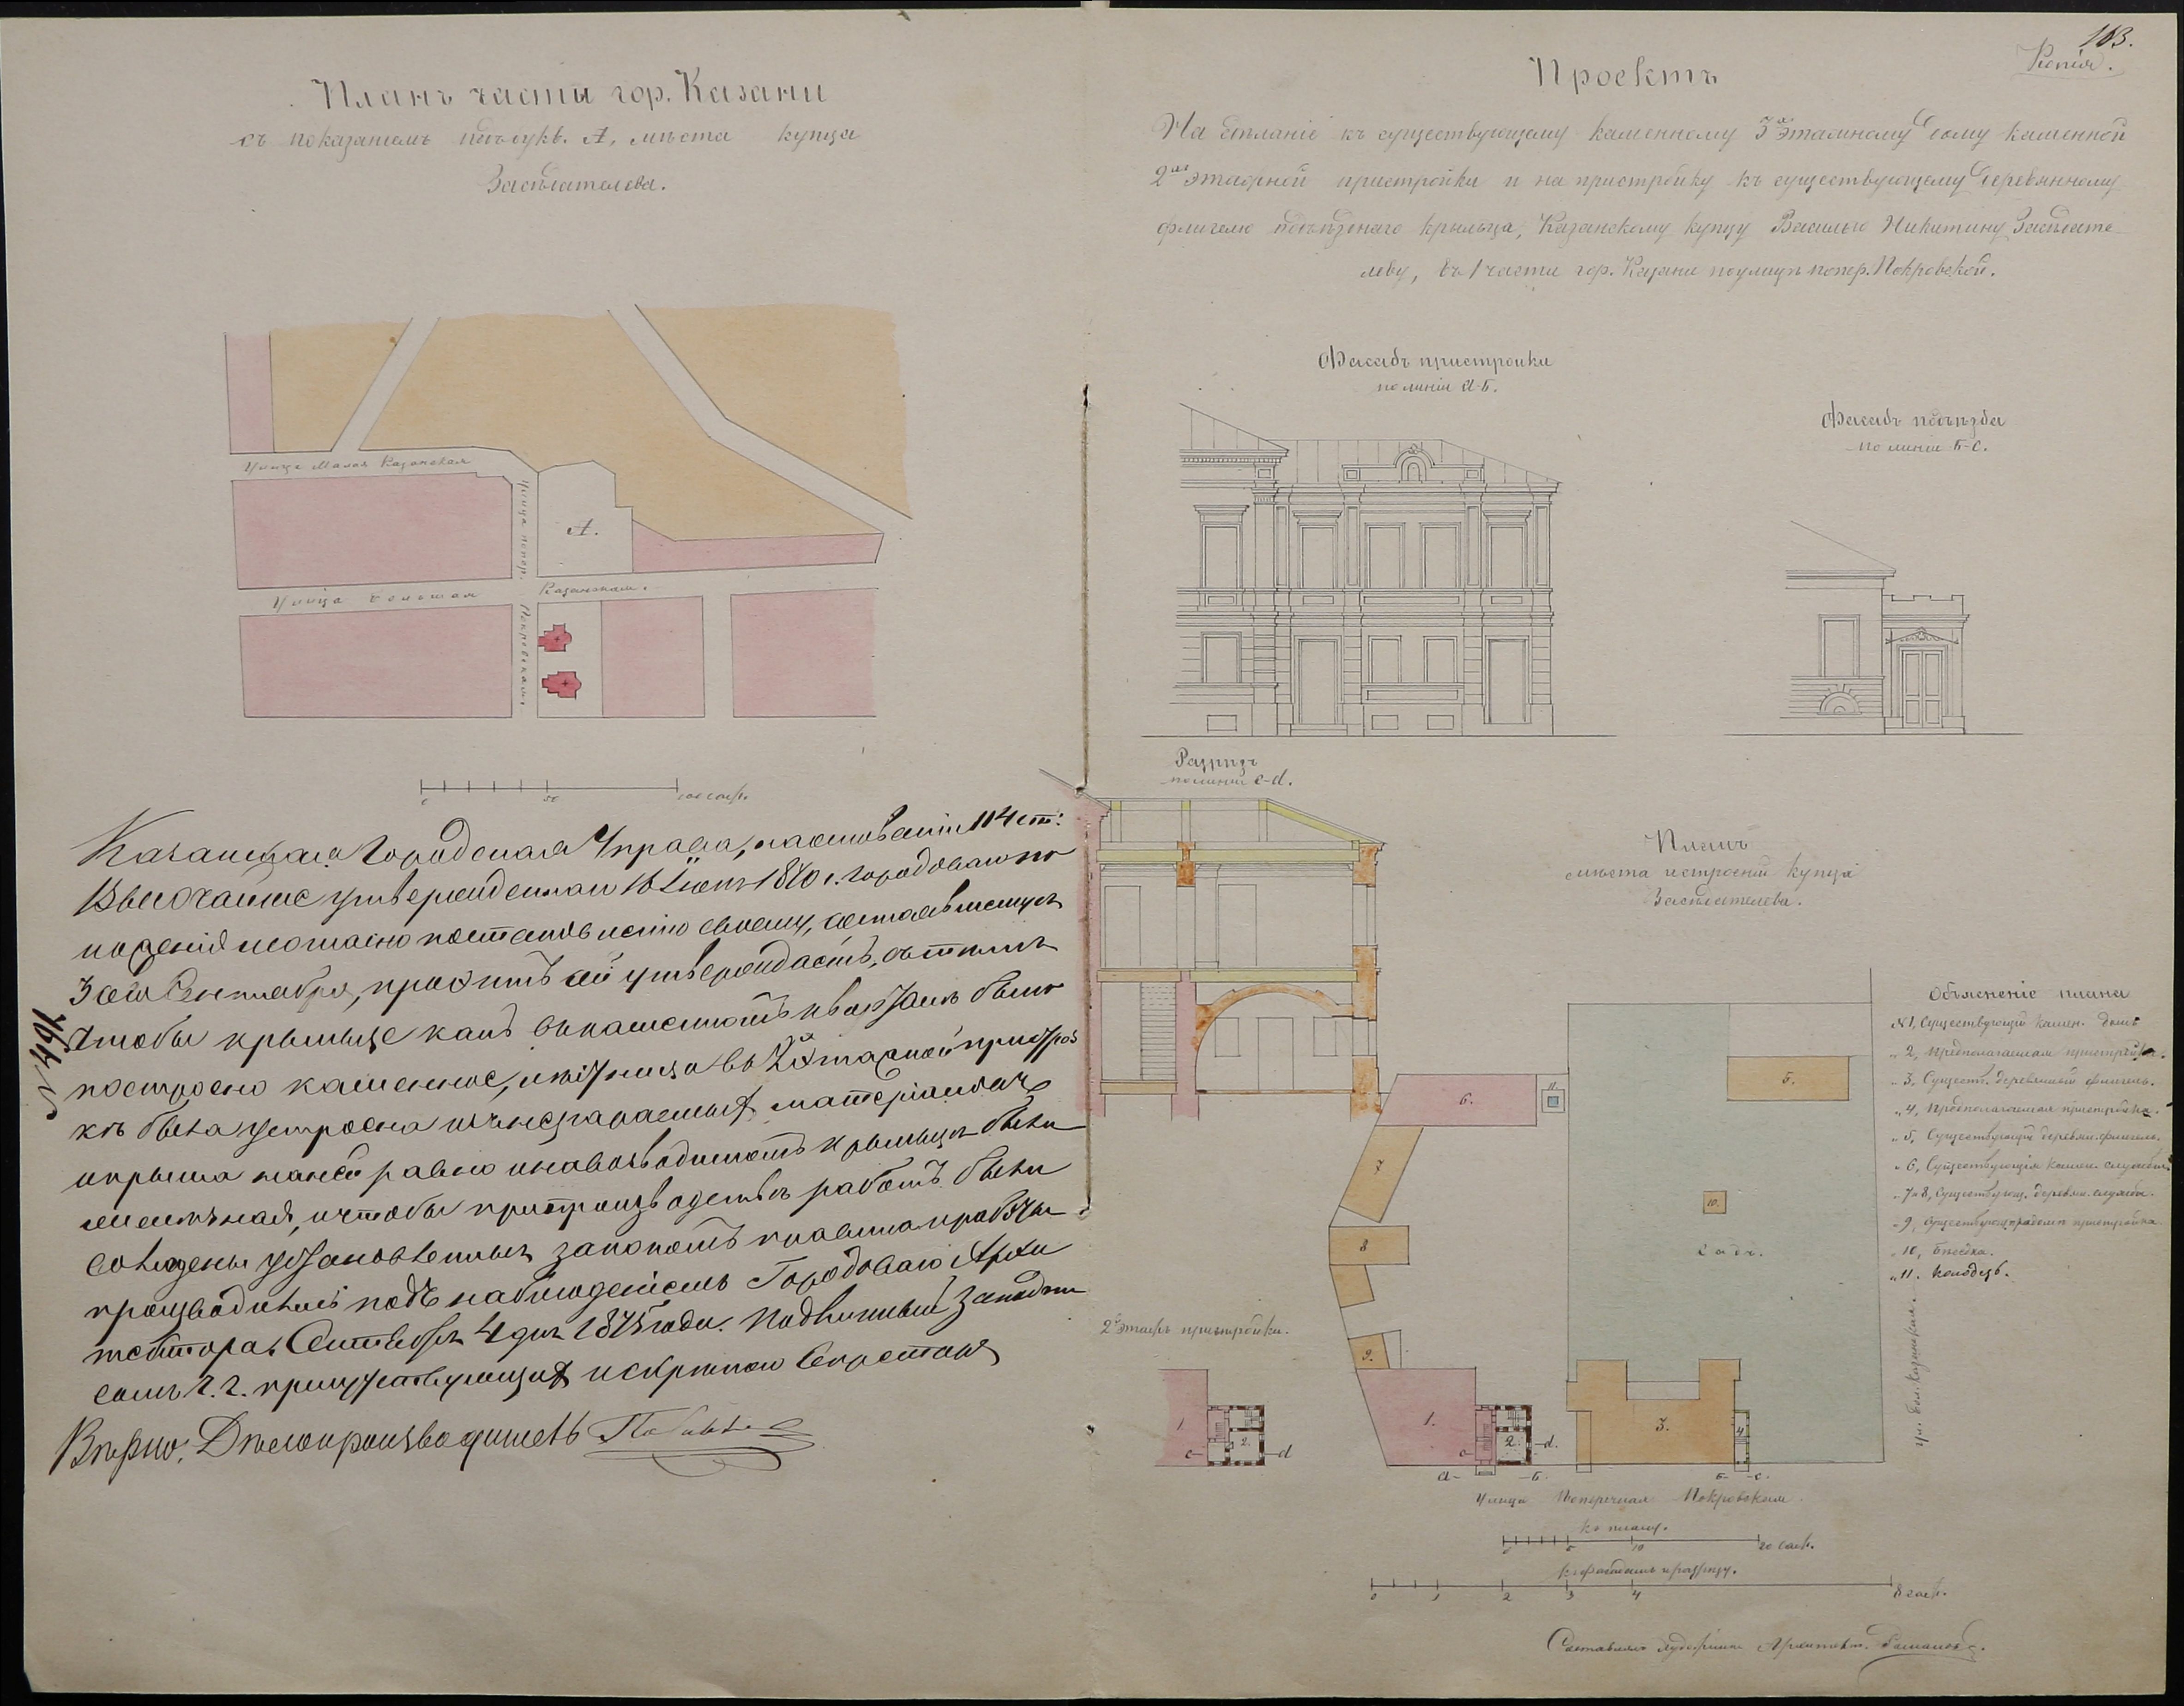 Планъ части гор. Казани
съ показаніемъ подъ букв. А, мѣста купца
Засыпателева.
Улица Малая Казанская
Улица попер. Покровская
А.
Улица большая Казанская.
0 50 100 саж.
Казанская Городская Управа, на основаніи 114 ст:
Высочайше утвержденнаго 16 Іюня 1870 г. Городоваго по
ложенія согласно постановленію своему, состоявшемуся
Сентября, проэктъ сей утверждаетъ, съ тѣмъ
чтобы крыльце какъ было
построено каменное, лѣстница въ 2хъ этажной пристрой
кѣ была устроена изъ несгараемыхъ матеріаловъ
крыша равно и крыльца были
и чтобы при производствѣ работъ были
соблюдены установленныя закономъ правила
производились подъ наблюденіемъ Городоваго Архи
тектора. Сентября 4 дня 1875 года. Подлинный за подпи
сомъ г.г. присутствующихъ и скрѣпою Секретаря
Вѣрно: Дѣлопроизводитель
№ 491
183.
Копія.
Проектъ
На дѣланіе къ существующему каменному 3х этажному дому каменной
2хъ этажной пристройки и на пристройку къ существующему деревянному
флигелю подъѣзднаго крыльца, Казанскому купцу Василью Никитину Засыпате-
леву, въ 1 части гор. Казани по улицѣ попер. Покровской.
Фасадъ пристройки
по линіи А-Б.
Фасадъ подъѣзда
по линіи Б-С.
Разрѣзъ
по линіи c-d.
Планъ
мѣста и строеній купца
Засыпателева.
Объясненіе плана
№ 1, Существующій камен. домъ
" 2, Предполагаемая пристройка.
" 3, Существ. деревянный флигель.
" 4, Предполагаемая пристройка.
" 5, Существующій деревян. флигель.
" 6, Существующія камен. службы.
" 7 и 8, Существующ. деревян. службы.
" 9, Существующ. пристройка
" 10, Бесѣдка.
" 11. Колодезь.
5.
6.
11.
7
8
10.
Садъ.
9.
1.
2.
3.
4
c- -d.
А- -Б.
Б- -С.
ул. Бол. Казанская.
2й этажъ пристройки.
1
2.
c- -d
Улица Поперечная Покровская.
Къ плану.
0 5 10 20 саж.
Къ фасадамъ и разрѣзу.
0 1 2 3 4 8 саж.
Составлялъ Архитект. Романовъ.